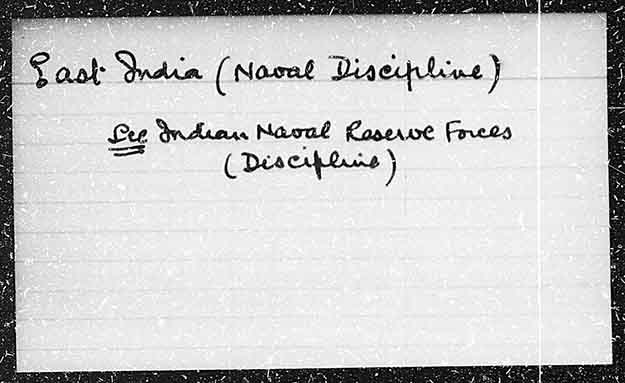 East India (Naval Discipline)
See Indian Naval Reserve Forces
(Discipline)